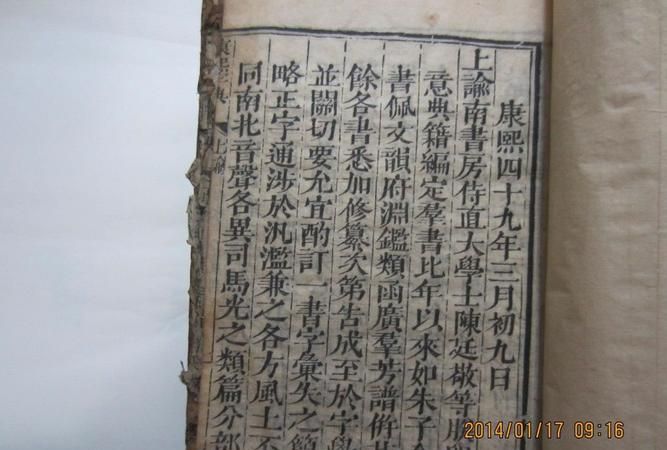 康熙四十九年三月初九日
上諭南書房侍直大學士陳廷敬等朕
意典籍編定羣書比年以來如朱子
書佩文韻府淵鑑類函廣羣芳譜併
餘各書悉加修纂次第告成至於字學
並關切要允宜酌訂一書字彙失之簡
略正字通涉於汎濫兼之各方風土不
同南北音聲各異司馬光之類篇分部
康熙字典 上諭
2014/01/17 09:16